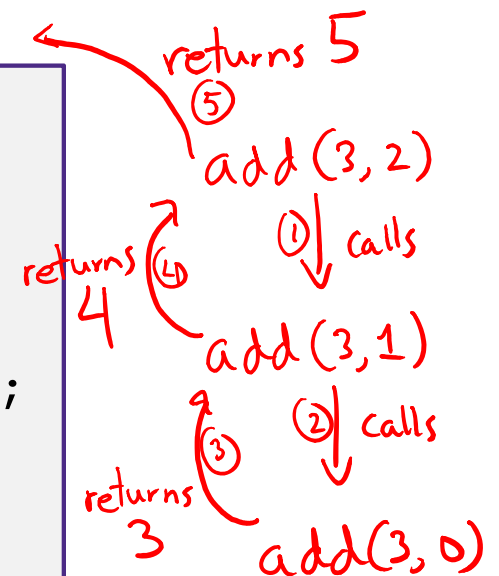 returns 5
⑤
add (3, 2)
① calls
returns ④
4
add (3, 1)
;
② calls
③
returns
3
add(3, 0)